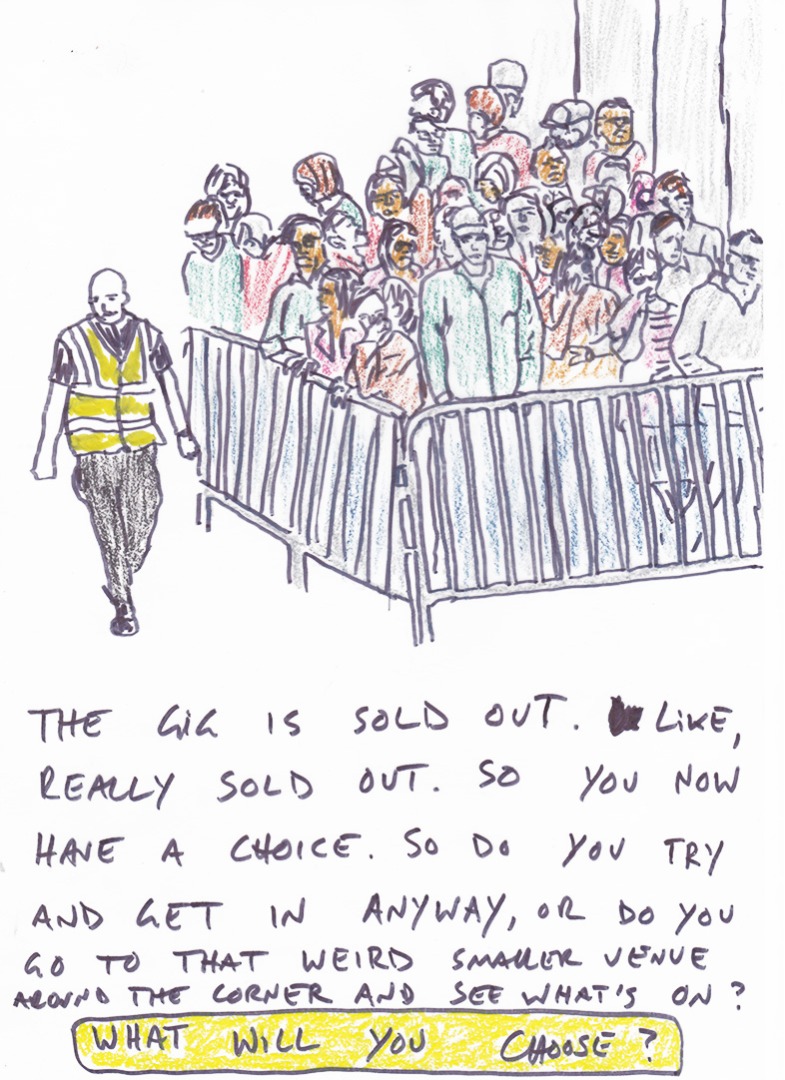 THE GIG IS SOLD OUT. LIKE,
REALLY SOLD OUT. SO YOU NOW
HAVE A CHOICE. SO DO YOU TRY
AND GET IN ANYWAY, OR DO YOU
GO TO THAT WEIRD SMALLER VENUE
AROUND THE CORNER AND SEE WHAT'S ON?
WHAT WILL YOU CHOOSE?